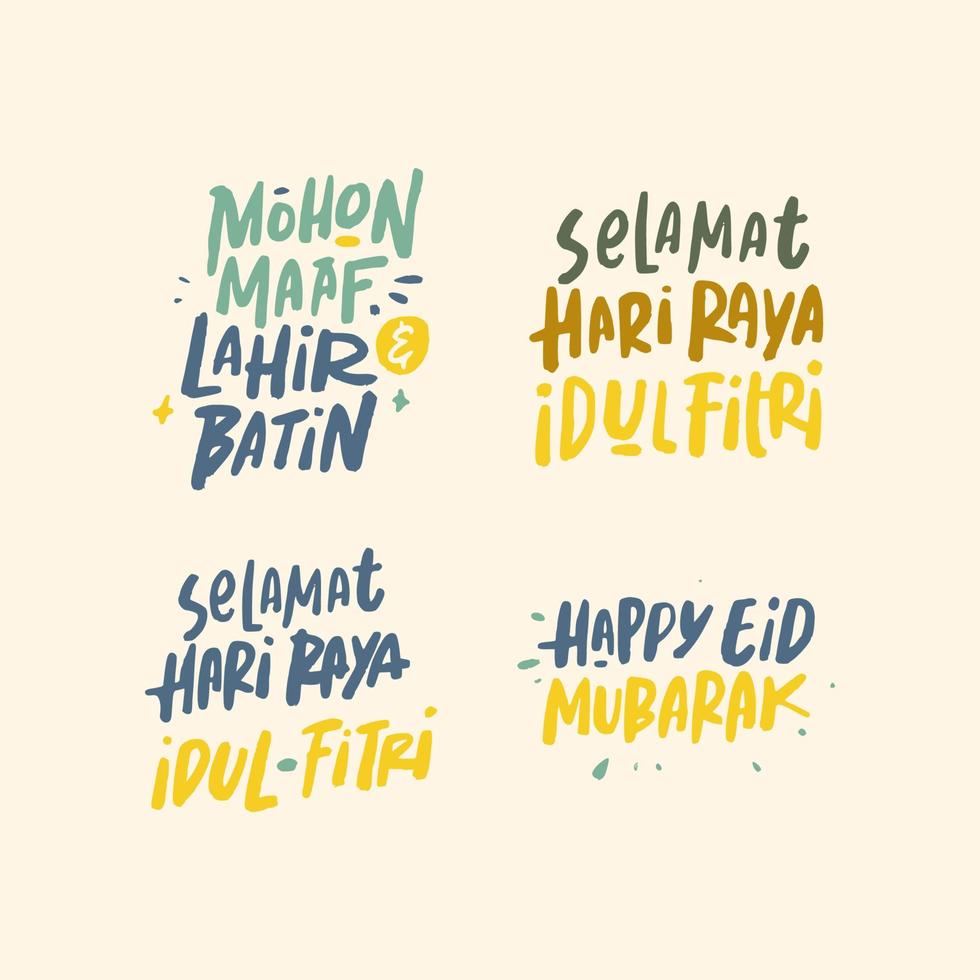 MOHON
MAAF
LAHIR &
BATIN
SELAMAT
HARI RAYA
IDUL FITRI
SELAMAT
HARI RAYA
IDUL-FITRI
HAPPY EID
MUBARAK